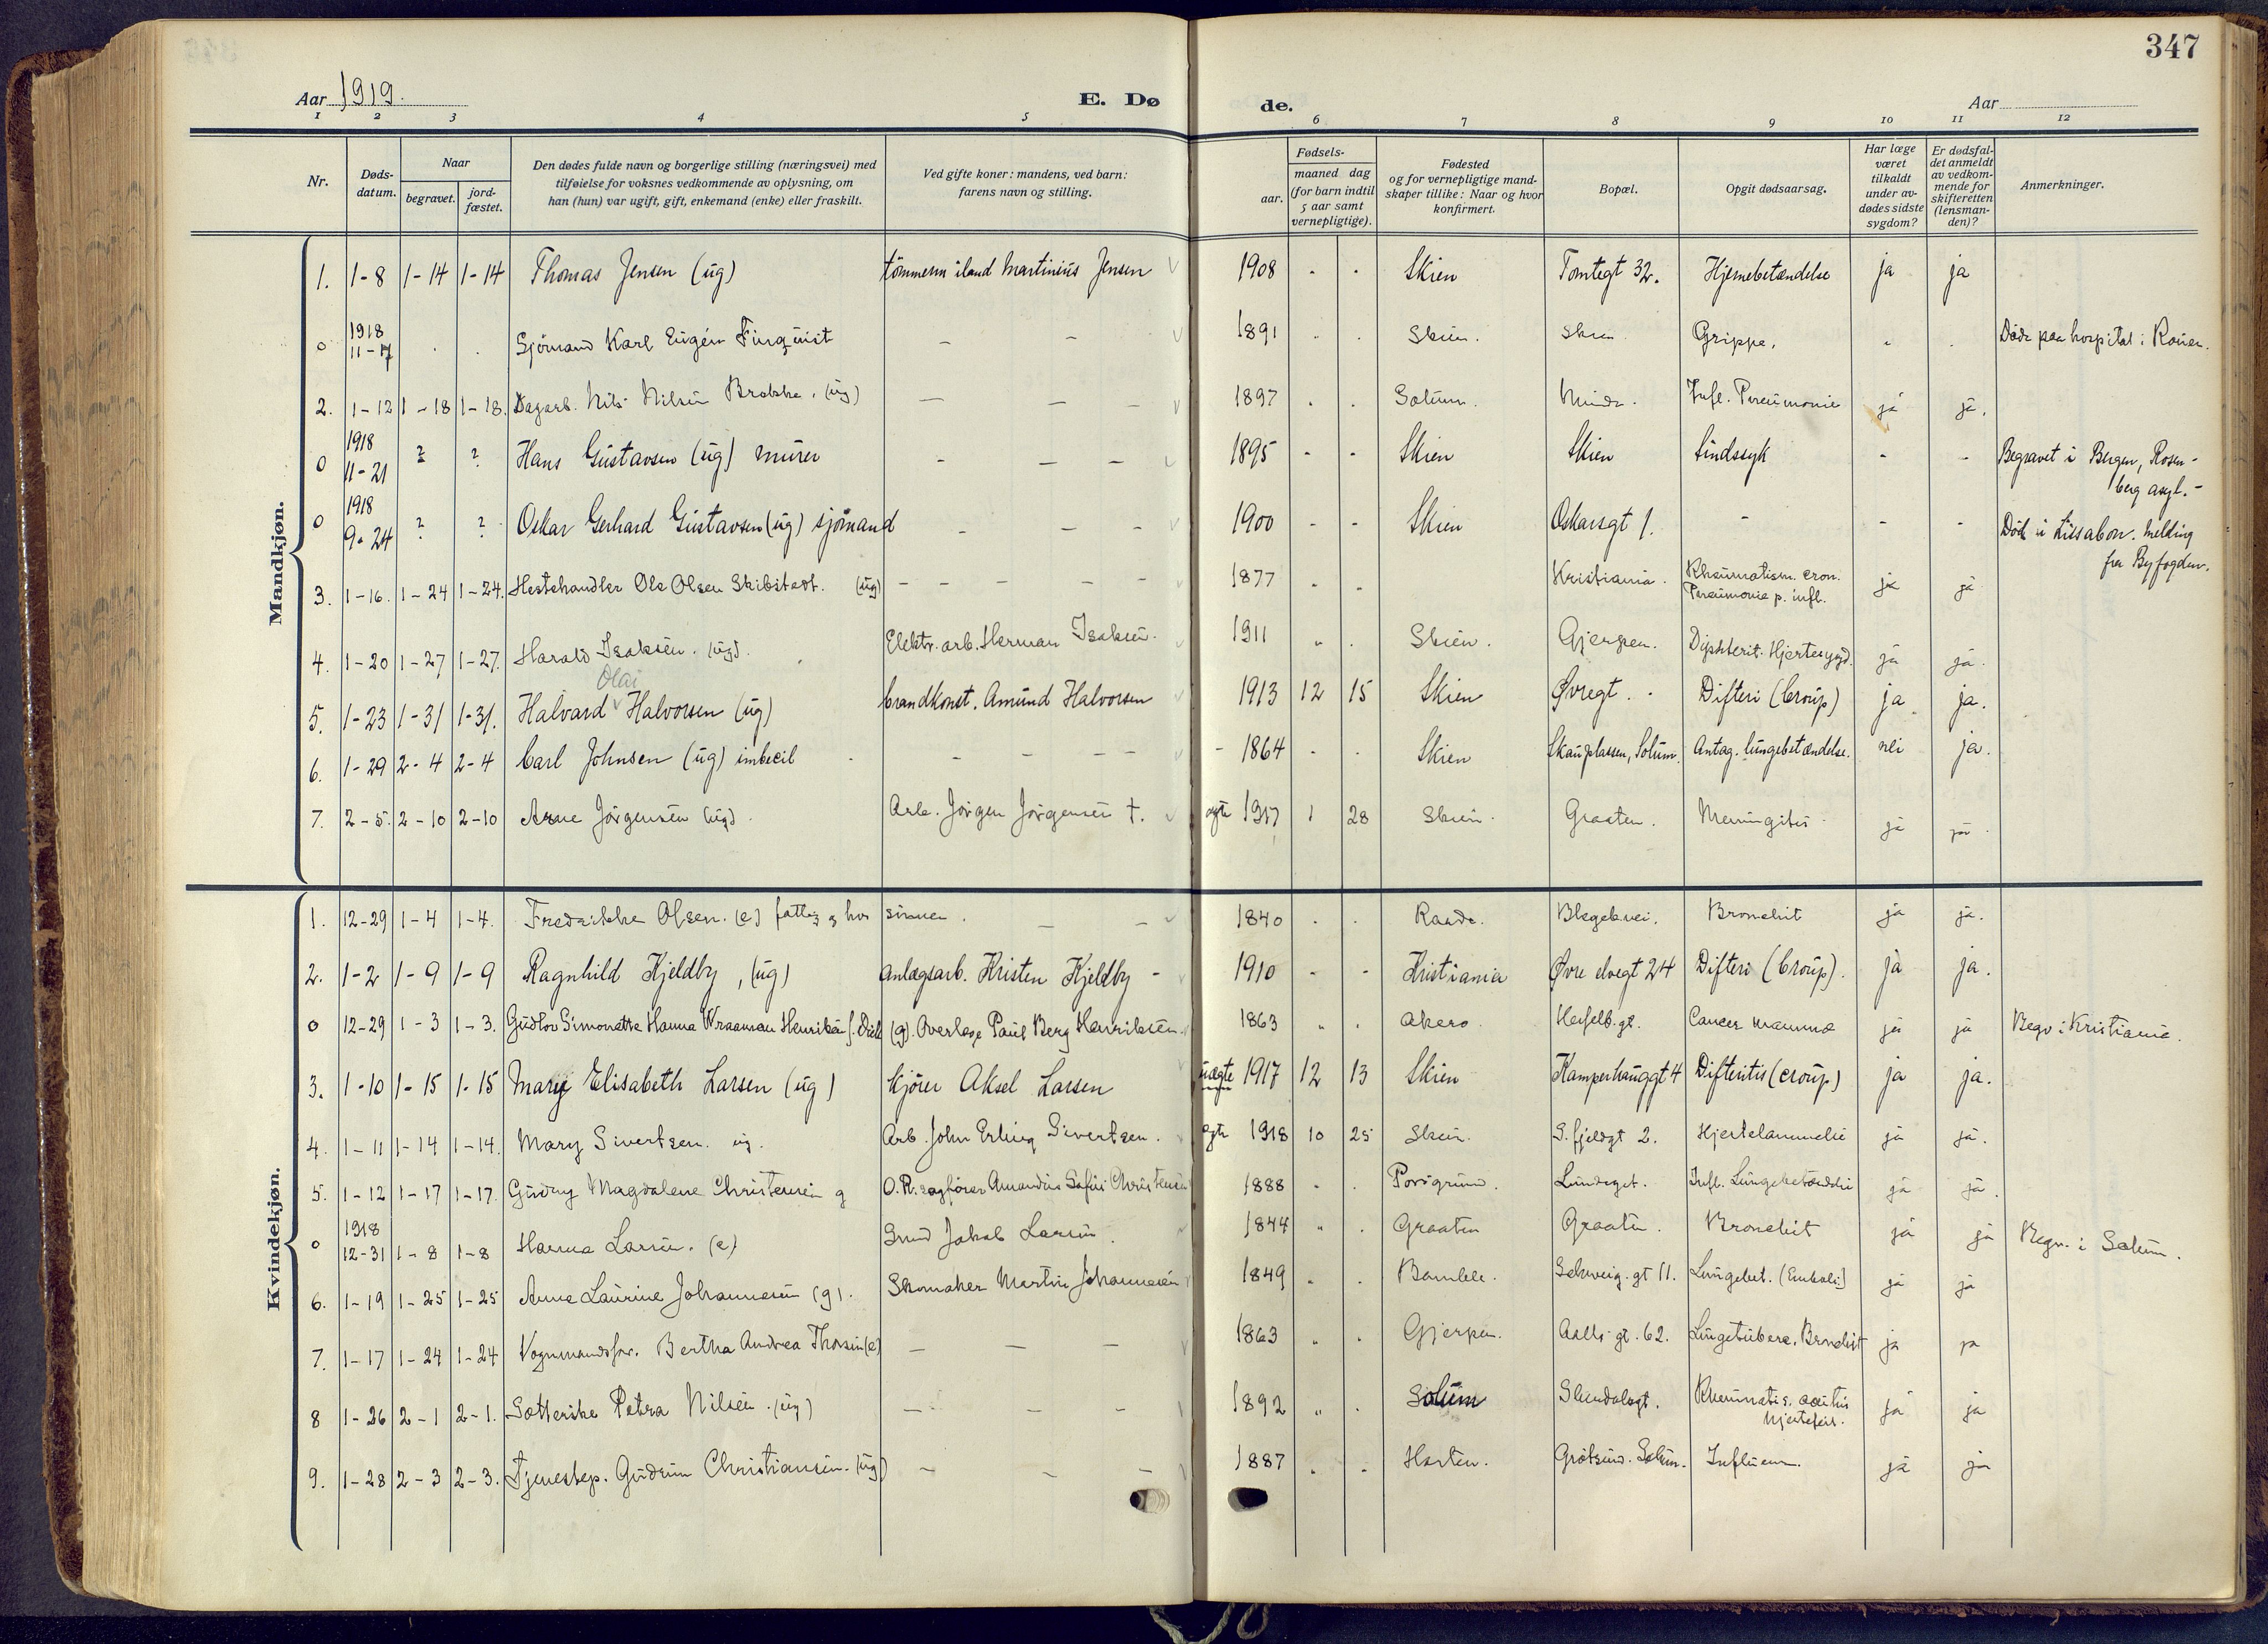 347
Aar 1919.
E. Døde.
Aar
1 2 3 4 5 6 7 8 9 10 11 12
Nr.
Dødsdatum.
Naar
begravet.
jordfæstet.
Den dødes fulde navn og borgerlige stilling (næringsvei) med
tilføielse for voksnes vedkommende av oplysning, om
han (hun) var ugift, gift, enkemand (enke) eller fraskilt.
Ved gifte koner: mandens, ved barn:
farens navn og stilling.
Fødsels-
aar.
maaned dag
(for barn indtil
5 aar samt
vernepligtige).
Fødested
og for vernepligtige mand-
skaper tillike: Naar og hvor
konfirmert.
Bopæl.
Opgit dødsaarsag.
Har læge
været
tilkaldt
under av-
dødes sidste
sygdom?
Er dødsfal-
det anmeldt
av vedkom-
mende for
skifteretten
(lensman-
den)?
Anmerkninger.
Mandkjøn.
1. 1-8 1-14 1-14 Thomas Jensen (ug) Martinius Jensen 1908 - - Skien Tomtegt 32. Hjernebetændelse ja ja
0 1918 11-17 Sjömand Karl Eugén Finquist - - 1891 Skien. Skien Grippe. Döde paa hospital i Rouen.
2. 1-12 1-18 1-18. Dagarb. Nils Nilsen Brakke. (ug) - - - 1897 Solum. Infl. Pneumonie ja ja.
0 1918 11-21 ? ? Hans Gustavsen (ug) murer - - - 1895 - - Skien Skien Sindssyk - - Begravet i Bergen, Rosen-
berg asyl.-
0 1918 9-24 ? ? Oskar Gerhard Gustavsen (ug) sjömand - - - 1900 - - Skien Oskarsgt 1. - - - Död i Lissabon. Melding
fra Byfogden.
3. 1-16. 1-24 1-24. Hestehandler Ole Olsen Skibstedt. (ug) - - - - - 1877 Kristiania. Rheumatism. cron.
Pneumonie p. infl. ja ja
4. 1-20 1-27 1-27. Harald Isaksen. (ug). Elektr. arb. Herman Isaksen. 1911 Skien. Gjerpen. Diphterit. Hjertesygd. ja ja.
Olai
5. 1-23 1-31 1-31. Halvard Halvorsen (ug) brandkonst. Amund Halvorsen 1913 12 15 Skien Øvregt. Difteri (Croup) ja ja.
6. 1-29 2-4 2-4 Carl Johnsen (ug) imbecil - - - - 1864 Skien Skauplassen, Solum. Antag. lungebetændelse. nei ja.
7. 2-5. 2-10 2-10 Arne Jörgensen (ug) Arb. Jörgen Jörgensen †. ægte 1917 1 28 Skien. Graaten. Meningitis ja ja.
Kvindekjøn.
1. 12-29 1-4 1-4. Fredrikke Olsen. (e) hos sönnen. - - 1840 Raade. Blegebvei. Bronchit ja ja.
2. 1-2 1-9 1-9 Ragnhild Kjeldby, (ug) anlægsarb. Kristen Kjeldby - 1910 - - Kristiania Øvre elvegt 24 Difteri (Croup). ja ja.
0 12-29 1-3 1-3. Gudlov Simonette Hanna Wraaman Henriksen (g). Overlæge Paul Berg Henriksen. 1863 Akero. Hesselb. gt. Cancer mamma ja ja Begr. i Kristiania.
3. 1-10 1-15 1-15 Mary Elisabeth Larsen (ug) kjörer Aksel Larsen uægte 1917 12 13 Skien Kamperhauggt 4 Difteritis (croup) ja ja.
4. 1-11 1-14 1-14. Mary Sivertsen. ug. Arb. John Erling Sivertsen. ægte 1918 10 25 Skien. S. fjeldgt 2. Hjertelammelse ja ja.
5. 1-12 1-17 1-17. Gudny Magdalene Christensen g O.R. sagförer Amandus Sofus Christensen 1888 Porsgrund. Lundegt. Infl. Lungebetændelse ja ja.
0 1918 12-31 1-8 1-8 Hanna Larsen. (e) Smed Jakob Larsen. 1844 Graaten Graaten. Bronchit ja ja Begr. i Solum.
6. 1-19 1-25 1-25 Anne Laurine Johannesen (g). Skomaker Martin Johannesen 1849 Bamble. Schweig. gt 11. Lungebet. (Emboli) ja ja
7. 1-17 1-24 1-24 Vognmandsfor. Bertha Andrea Thorsen (e) - - - 1863 Gjerpen. Aalls gt. 62. Lungetuberc. Bronchit ja ja
8 1-26 2-1 2-1. Sætterske Petra Nilsen. (ug) - - - 1892 Solum Slemdalsgt. Rheumatis. acutus
hjertefeil. ja ja
9. 1-28 2-3 2-3. Tjenestep. Gudrun Christiansen. (ug) - - - 1887 Horten. Grötsund. Solum. Influenza. ja ja